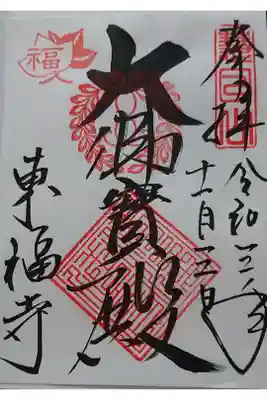 奉拝
令和三年
十一月三日
大佛寳殿
東福寺
福